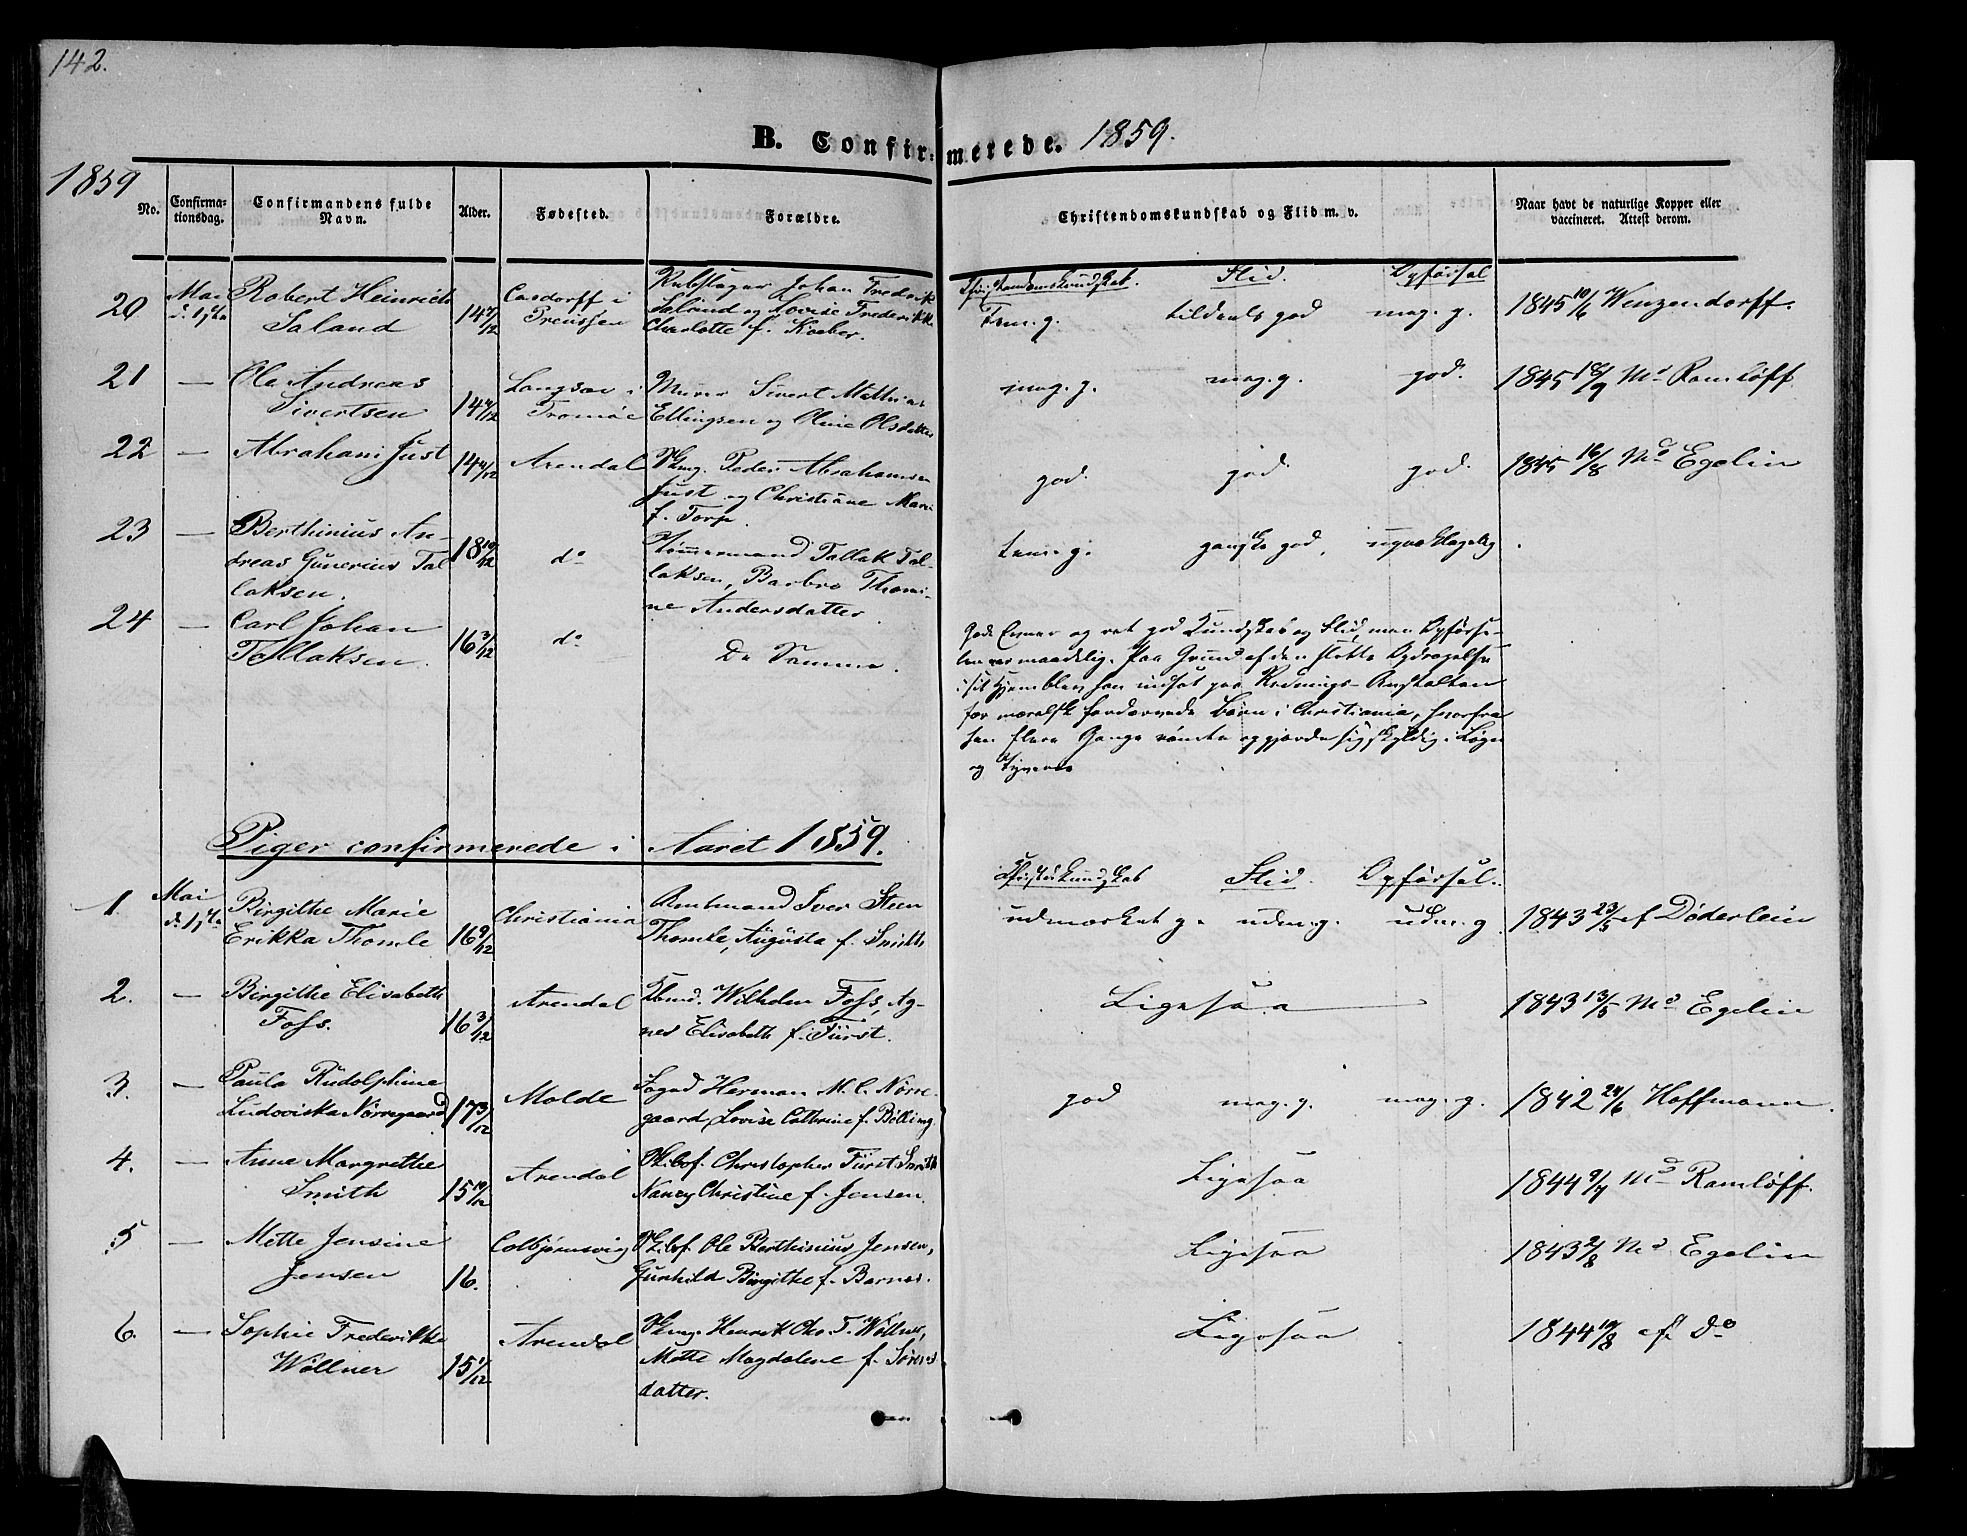 142.
B. Confirmerede. 1859.
1859
No.
Confirmationsdag.
Confirmandens fulde Navn.
Alder.
Fødested.
Forældre.
Christendomskundskab og Flid m. v.
Naar havt de naturlige Kopper eller vaccineret. Attest derom.
Christendomskundskab. Flid. Opførsel
20 Mai Robert Heinrich
Saland 14 7/12
Casdorff i
Preussen
Rebslager Johan Fredrik
Saland og Lovise Frederikke
Charlotte f. Koeber.
Tem. g. tildeels god meg. g. 1845 10/6 Wenzendorff.
21 — Ole Andreas
Sivertsen
Langsæe i
Tromöe
Murer Sivert Mathias
Ellingsen og Oline Olsdatter
meg. g. meg. g. god. 1845 18/9 Md Ramløff
22 — Abraham Just
Arendal
Skmg. Peder Abrahamsen
Just og Christiane Marie
f. Torp.
god. god. god. 1845 16/8 Md Egelin
23 — Berthinius An-
dreas Gunerius Tal
laksen.
18 10/12 do
Tömmermand Tallak Tal-
laksen, Barbro Thomi-
ne Andersdatter
tem. g. ganske god, upaaklagelig.
24 — Carl Johan
Tellaksen. 16 3/12 do
De Samme.
Gode Evner og ret god Kundskab og Flid, men Opførse-
len var maadelig. Paa Grund af den slette Opdragelse
i sit Hjem blev han indsat paa Rednings-Anstalten
for moralsk fordærvede Børn i Christiania, hvorfra
han flere Gange rømte og gjorde sig skyldig i Løgn
og Tyverie
Piger confirmerede i Aaret 1859.
Flid. Opførsel.
1. Mai Birgithe Marie
Erikka Thomle 16 9/12
Christiania
Amtmand Iver Steen
Thomle, Augusta f. Smith
udmærket g. udm. g. udm. g. 1843 23/5 af Döderlein
2. — Birgithe Elisabeth
Foss. 16 3/12
Arendal
Kbmd. Wilhelm Foss, Ag-
nes Elisabeth f. Fürst.
Ligesaa 1843 13/5 Md Egelin
3. — Paula Rudolphine
Ludoviska Nørregaard 17 3/12
Molde
Foged Herman M. C. Nørre-
gaard, Lovise Cathrine f. Bölling
god meg. g. meg. g. 1842 24/6 Hoffmann.
4. — Anne Margrethe
Smith 15 10/12
Arendal
Skibsf. Christopher Fürst Smith
Nancy Christine f. Jensen.
Ligesaa 1844 9/7 Md Ramløff.
5 — Mette Jensine
Jensen 16.
Colbjørnsvig
Skibsf. Ole Berthinius Jensen,
Gunhild Birgithe f. Barnes.
Ligesaa 1843 2/8 Md Egelin
6. — Sophie Frederikke
Wöllner 15 1/12
Arendal
Skmg. Henrik Chr. F. Wöllner,
Mette Magdalene f. Sörens
datter.
Ligesaa 1844 19/8 af do